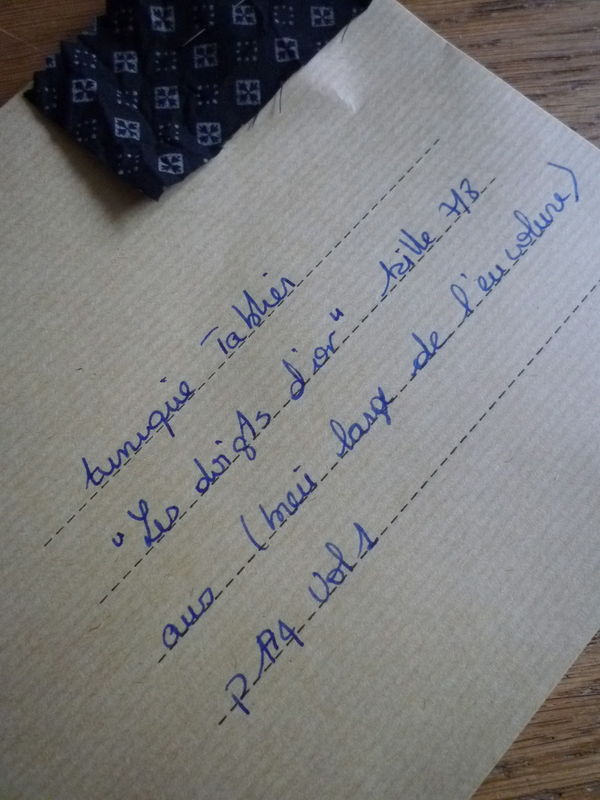 tunique Tablier
"Les doigts d'or" taille 7/8
ans (mais large de l'encolure)
P 114 Vol 1